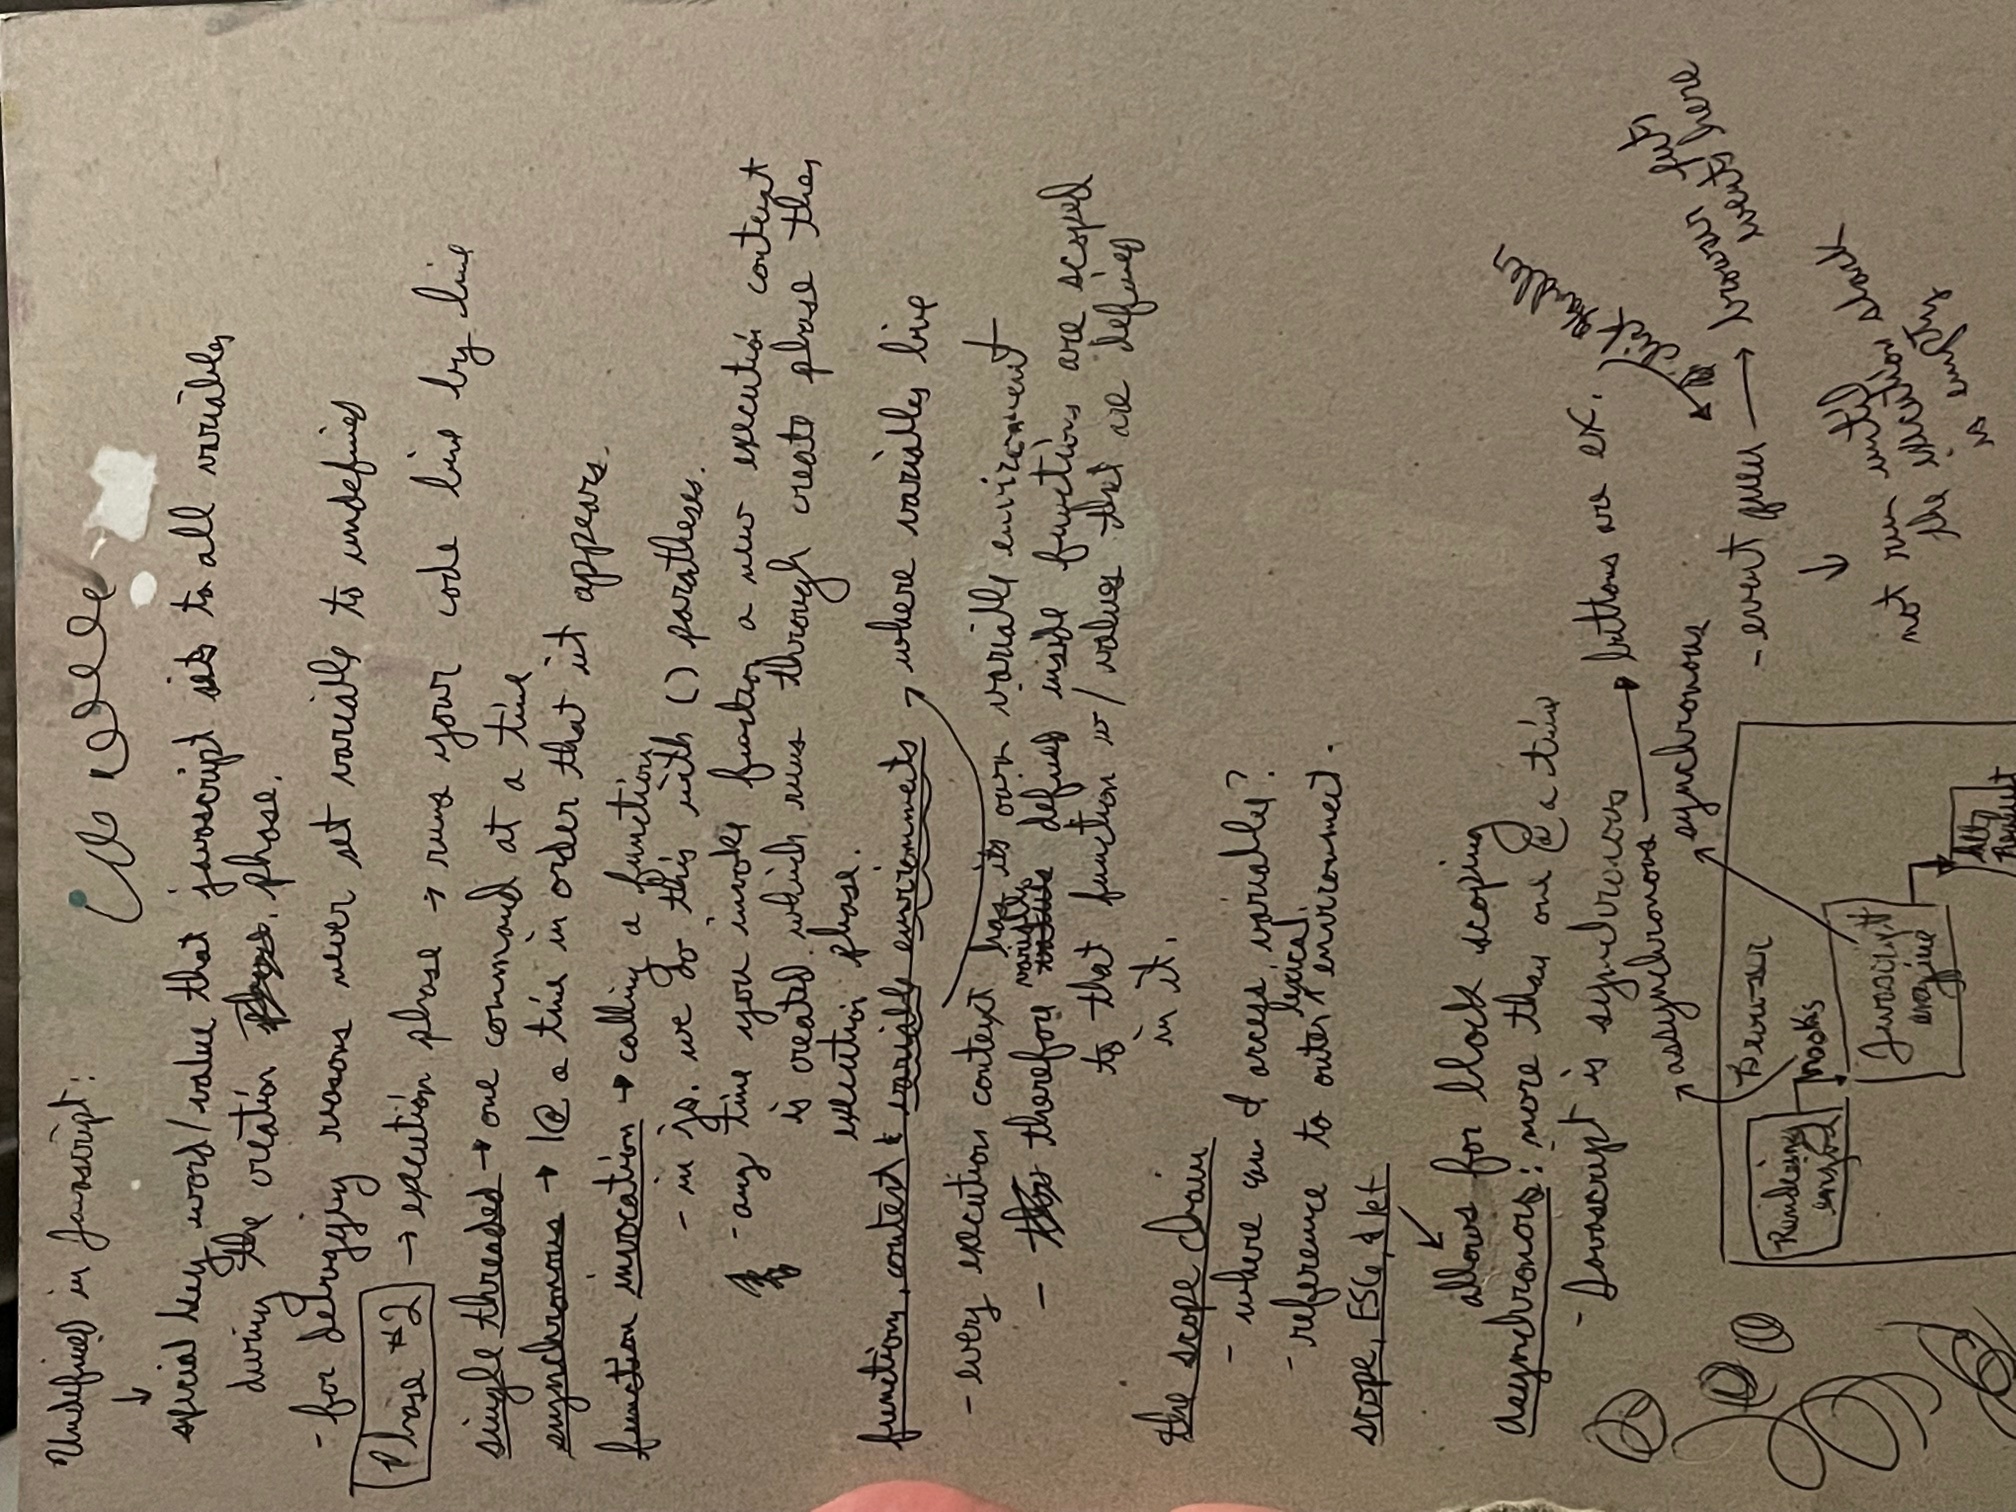 Undefined in Javascript:
↓
special key word/value that javascript sets to all variables
during the creation phase.
- for debugging reasons never set variable to undefined
Phase #2 → execution phase → runs your code line by line
single threaded → one command at a time
synchronous → 1@ a time in order that it appears.
function invocation → calling a function
- in js. we do this with () paratheses.
- any time you invoke function a new execution context
is created which runs through create phase then
execution phase.
functions, context & variable environments → where variables live
- every execution context has its own variable environment
- therefore variables defined inside functions are scoped
to that function w/ values that are defined
in it.
the scope chain
- where can I access variable?
- reference to outer lexical environment.
scope, ES6, & let
allows for block scoping
asynchronous: more than one @ a time
- Javascript is synchronous
assynchronous → buttons are ex.
synchronous
click Handler
- event queu → browser puts
events here
not run until
the execution stack
is empty
Browser
Rendering
engine
hooks
Javascript
engine
Request